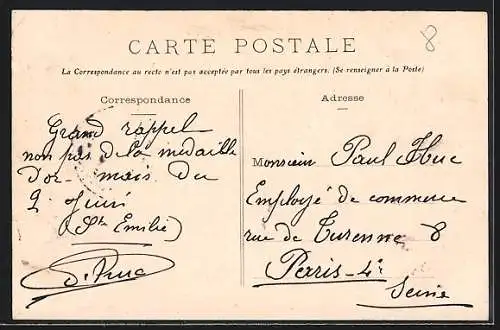 8
CARTE POSTALE
La Correspondance au recto n'est pas acceptée par tous les pays étrangers. (Se renseigner à la Poste)
Correspondance
Grand rappel
non pas de la médaille
D'or - mais du
2 Juin
(Ste Emilie)
Adresse
Monsieur Paul Huc
Employé de commerce
rue de Turenne 8
Perris-4e
Seine